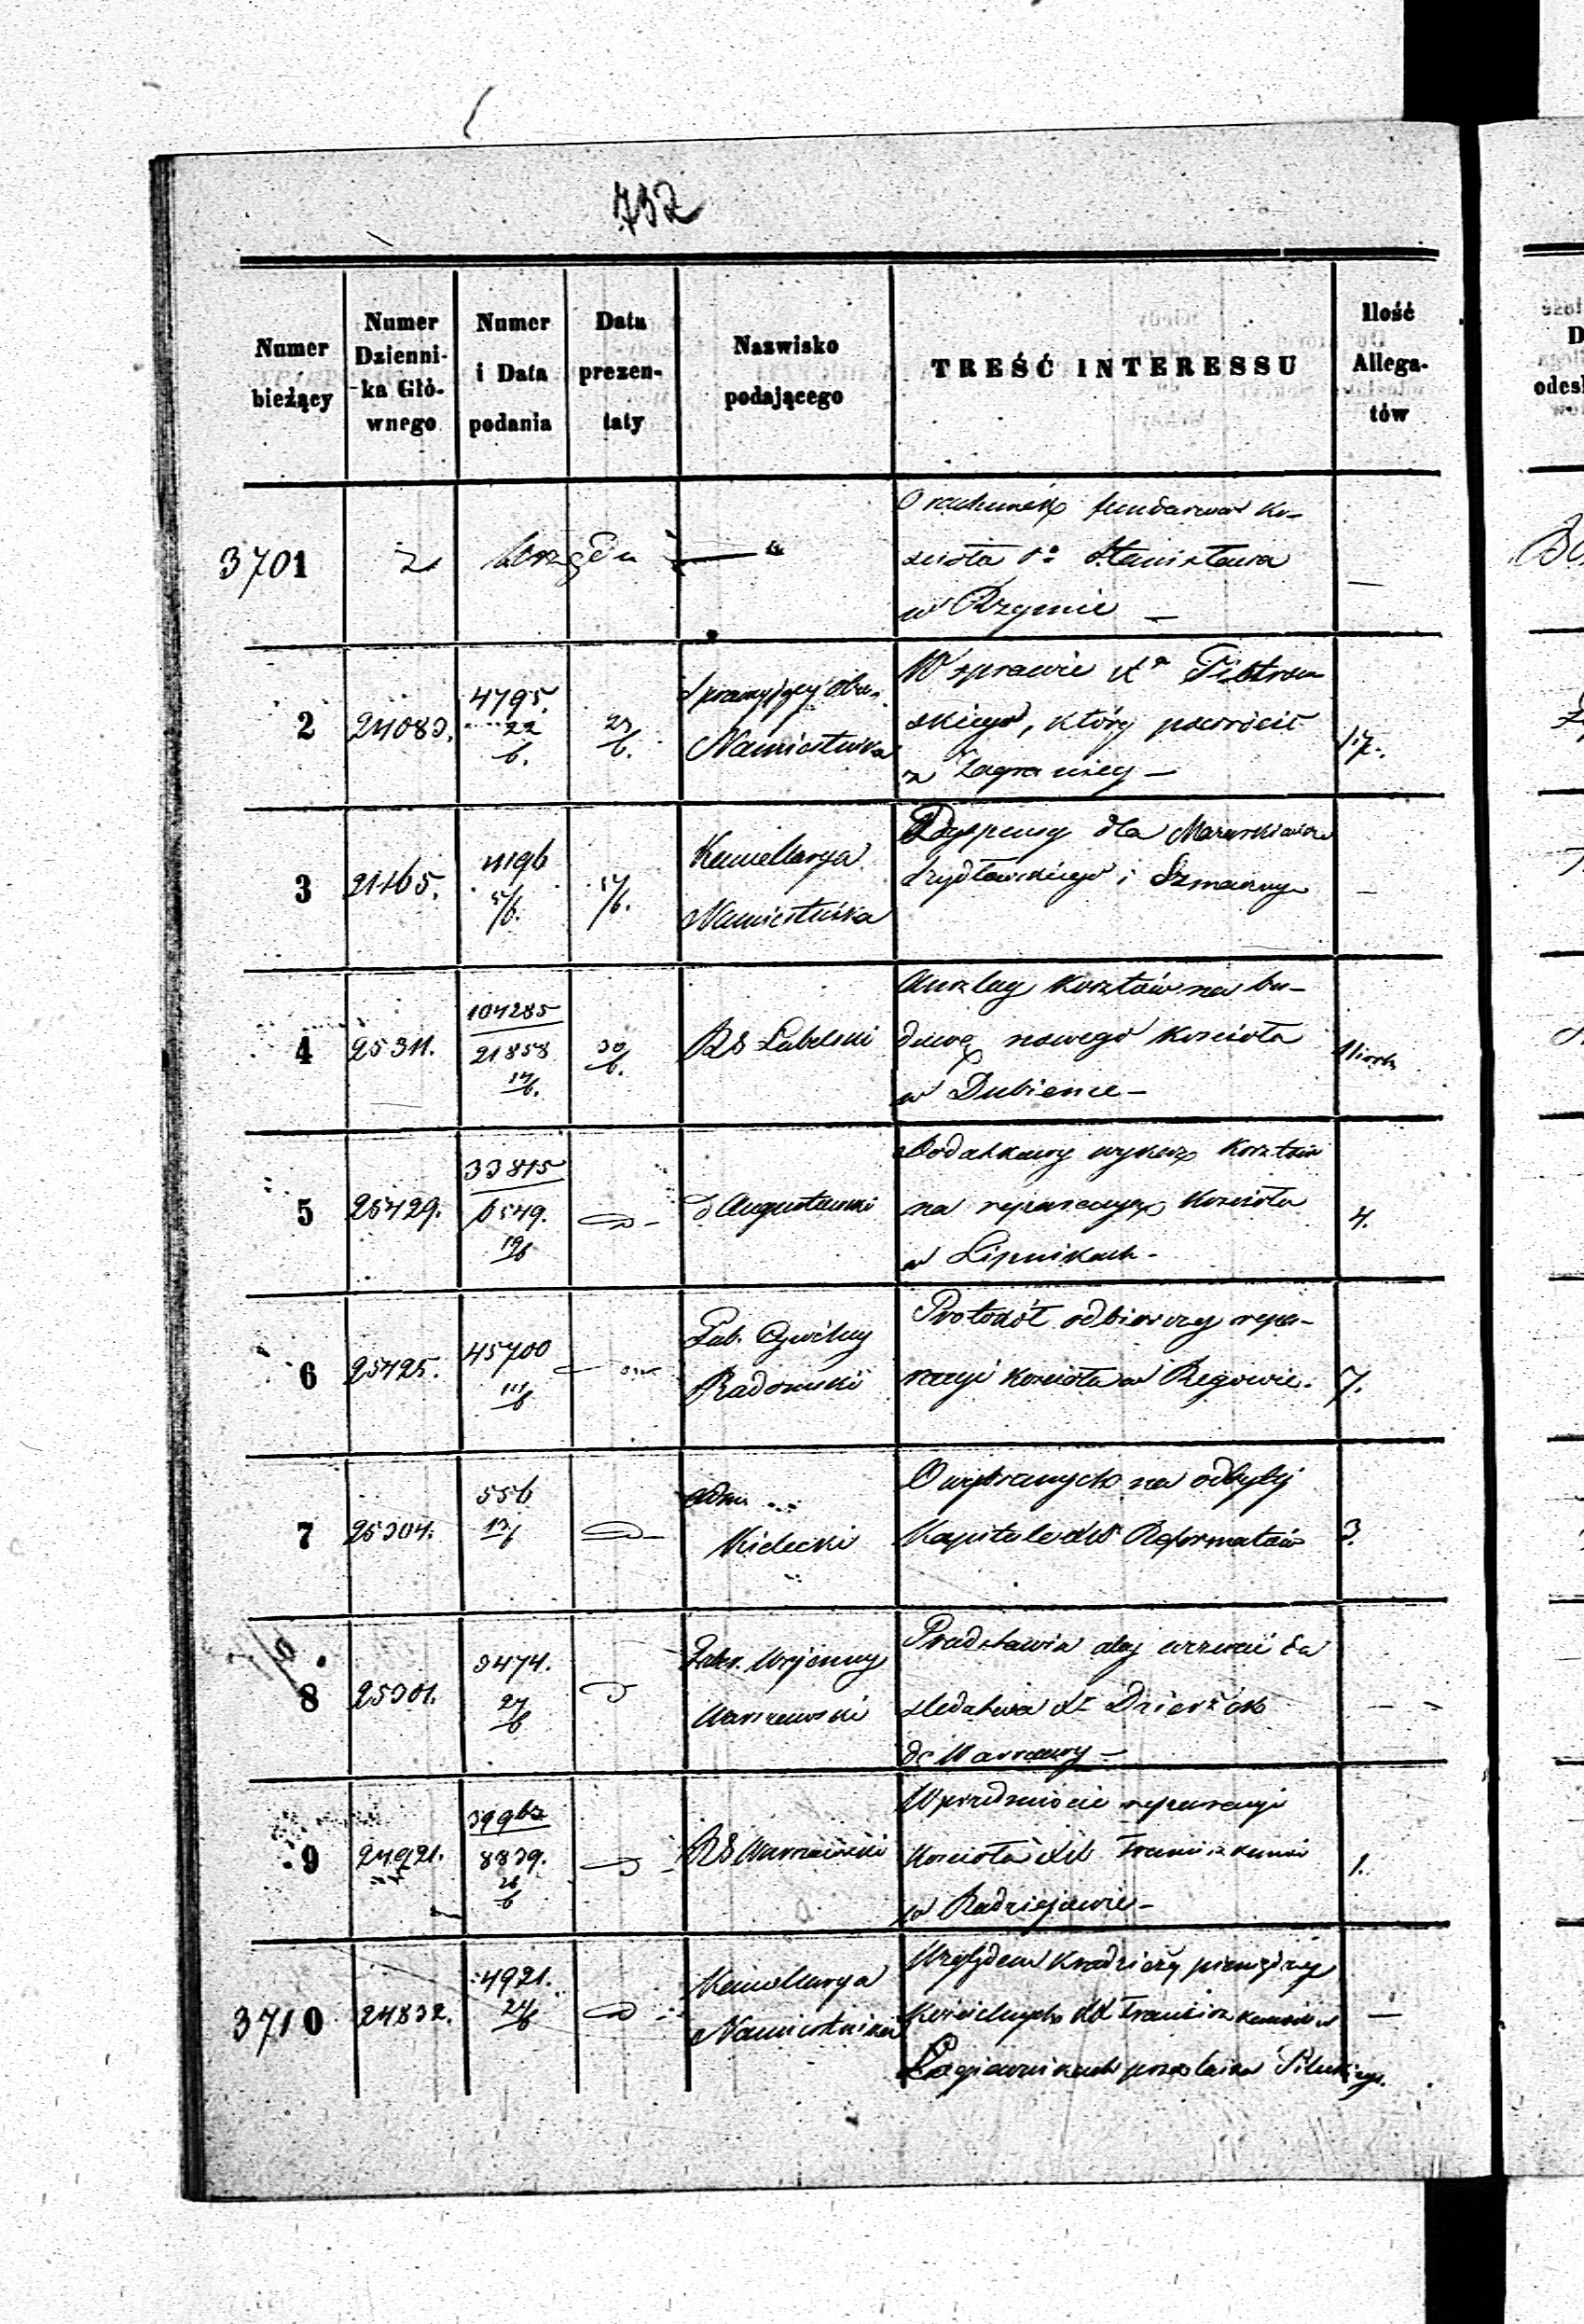 732
Numer bieżący
Numer Dzienni- ka Głó- wnego
Numer i Data podania
Data prezen- taty
Nazwisko podającego
TREŚĆ INTERESSU
Ilość Allega- tów
3701
z Urzędu
O rachunek funduszów ko-
ścioła Sº Stanisława
w Rzymie —
2
24083.
4795.
22
6.
23
6.
Namiestnika
W sprawie Xª Piotrow
skiego, który powrócił
z Zagranicy —
17.
3
4196
5/6.
Kancellarya
Namiestnika
Dyspensy dla
Szydłowskiego i
—
4
25311.
104285
21858
17/6.
30
6.
RG Lubelski
Anszlag kosztów na bu-
dowę nowego kościoła
w Dubience —
5
25429.
33815
6549.
19/6
d Augustowski
Dodatkowy wykaz kosztów
na reparacyą kościoła
w Lipnikach —
4.
6
25425.
45700
Gub. Cywilny
Radomski
Protokół odbiorczy repa-
racyi kościoła w Regowie.
7.
7
25304.
556
13/6
Adm
Kielecki
O wybranych na odbytej
Kapitule XX Reformatów
3.
8
25301.
3474.
27
6
Gub. Wojenny
Warszawski
Przedstawia aby wezwać do
śledztwa Xª
do Warszawy —
9
24921.
39962
8839.
26
6
RG Warszawski
W przedmiocie reparacyi
kościoła XX Franciszkanów
w Radziejowie —
1.
3710
24832.
4921.
24/6
Kancellarya
Namiestnika
Względem kradzieży pieniędzy
kościelnych XX Franciszkanów w
Łagiewnikach przez laika
—